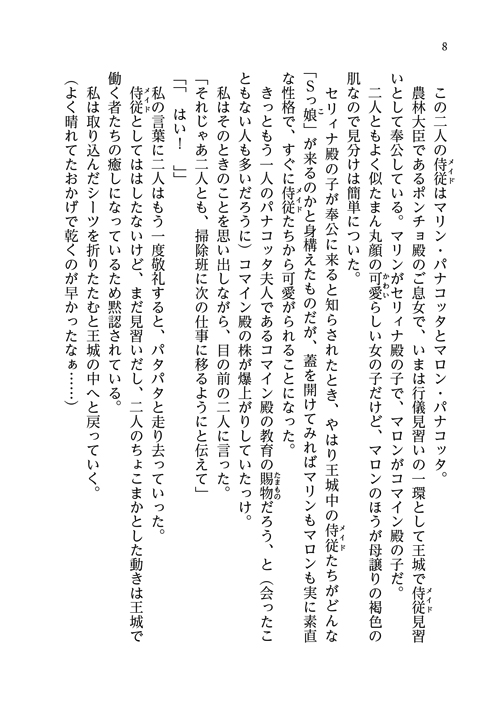 8
この二人の侍従はマリン・パナコッタとマロン・パナコッタ。
農林大臣であるポンチョ殿のご息女で、いまは行儀見習いの一環として王城で侍従見習
いとして奉公している。マリンがセリィナ殿の子で、マロンがコマイン殿の子だ。
二人ともよく似たまん丸顔の可愛らしい女の子だけど、マロンのほうが母譲りの褐色の
肌なので見分けは簡単についた。
セリィナ殿の子が奉公に来ると知らされたとき、やはり王城中の侍従たちがどんな
「Sっ娘」が来るのかと身構えたものだが、蓋を開けてみればマリンもマロンも実に素直
な性格で、すぐに侍従たちから可愛がられることになった。
きっともう一人のパナコッタ夫人であるコマイン殿の教育の賜物だろう、と（会ったこ
ともない人も多いだろうに）コマイン殿の株が爆上がりしていたっけ。
私はそのときのことを思い出しながら、目の前の二人に言った。
「それじゃあ二人とも、掃除班に次の仕事に移るようにと伝えて」
「「　はい！　」」
私の言葉に二人はもう一度敬礼すると、パタパタと走り去っていった。
侍従としてははしたないけど、まだ見習いだし、二人のちょこまかとした動きは王城で
働く者たちの癒しになっているため黙認されている。
私は取り込んだシーツを折りたたむと王城の中へと戻っていく。
（よく晴れてたおかげで乾くのが早かったなぁ……）